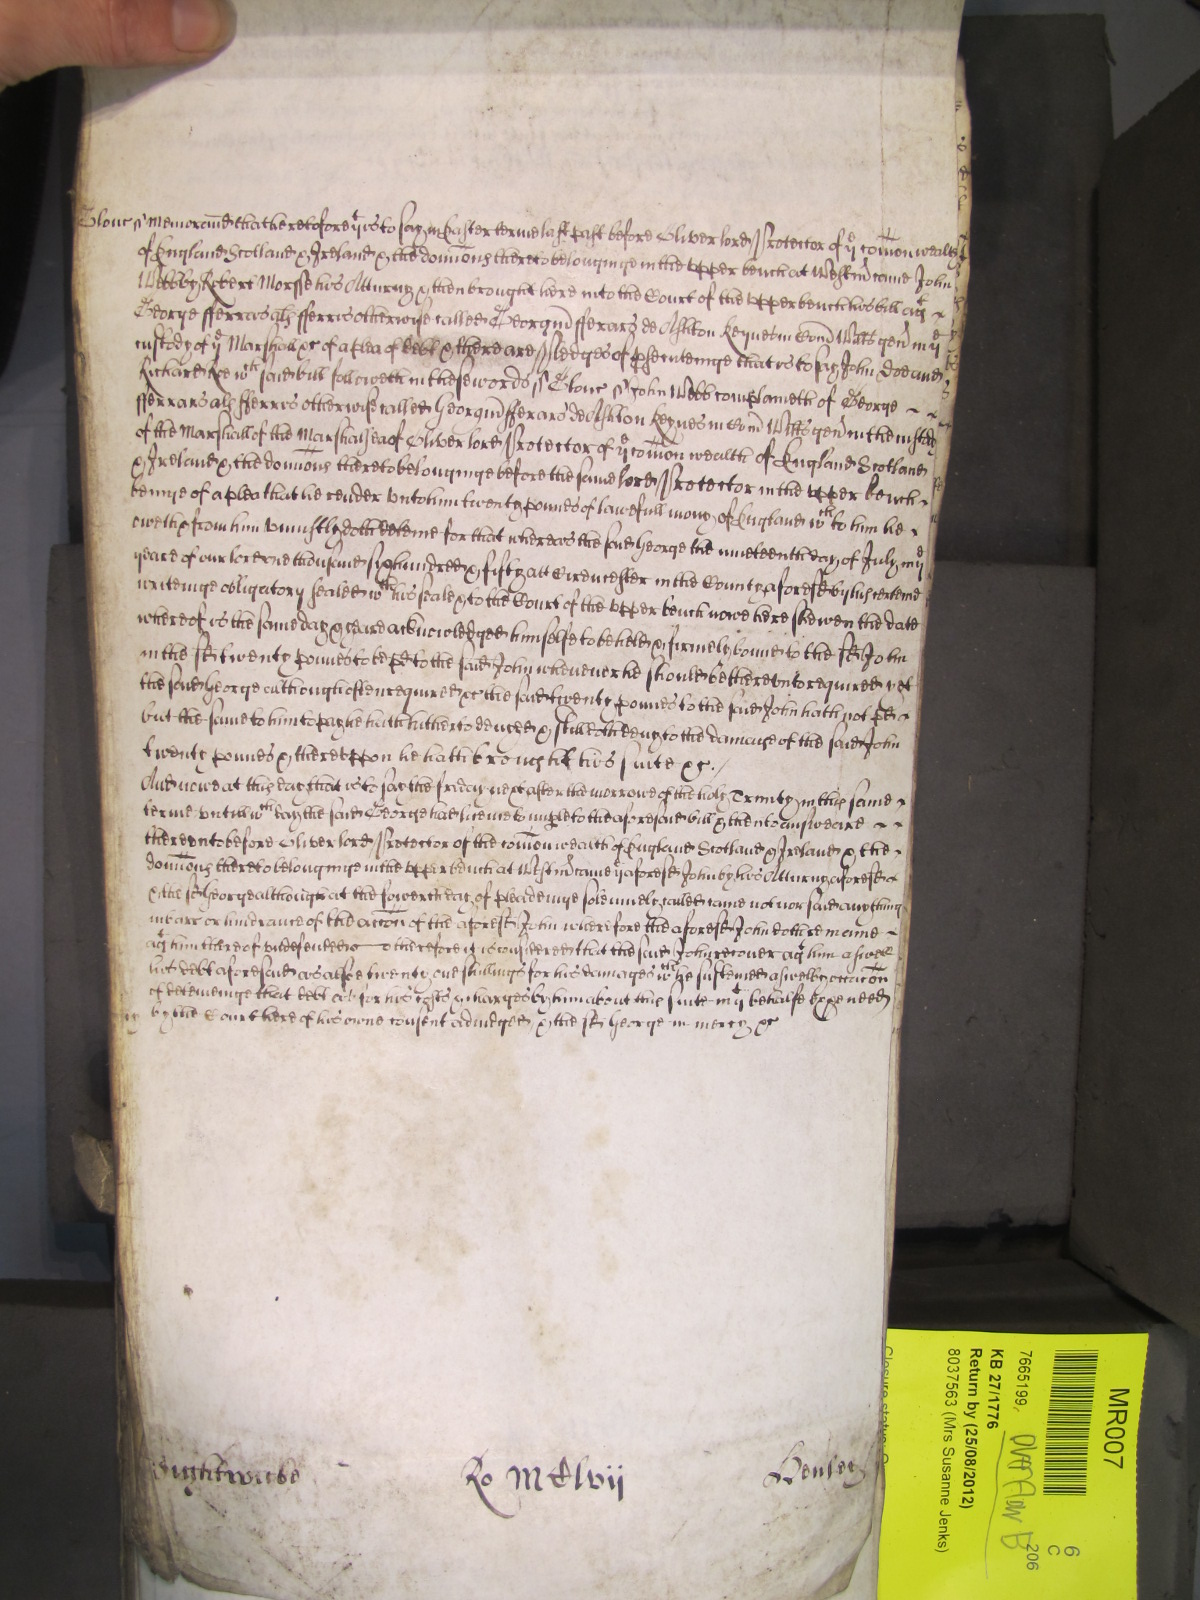 Glouc ss Memorand that heretofore yt is to say in Easter terme last past before Oliver lord Protector of ye comon wealth
of England Scotland & Ireland & the domions thereto belonginge in the upper bench at Westmr came John
Webb by Robert Morsse his Atturny & then brought here into the Court of the upper bench his bill agt
George fferrars als fferris otherwise called Georgiu fferars de Ashton Keynes in Com Wiltes gen in ye
custody of ye Marshall &c of a plea of debt & there are Pledges of psecuteinge that is to say John Doe and
Richard Roe wch said bill followeth in these words ss Glouc ss John Webb complaineth of George
fferrars als fferris otherwise called Georgiu fferars de Ashton Keynes in Com Wiltes gen in the custody
of the Marshall of the Marshalsea of Oliver lord Protector of ye comon wealth of England Scotland
& Ireland & the domions thereto belonginge before the same lord Protector in the upper bench
beinge of a plea that he render unto him twenty pounds of lawfull mony of England wch to him he
oweth & from him uniustly doth deteine for that whereas the said George the nineteenth day of July in ye
yeare of our lord one thousand six hundred & fifty att Cirencester in the County aforesd by his certeine
writeinge obligatory sealed wth his seale & to the Court of the upper bench nowe here shewen the date
whereof is the same day & yeare acknowledged himselfe to be held & firmely bound to the sd John
in the sd twenty pounds to be pd to the said John whenever he should be thereunto required yet
the said George although often required &c the said twenty pounds to the said John hath not pd
but the same to him to pay he hath hitherto denyed & still doth deny to the damage of the said John
twenty pounds & thereuppon he hath brought his suite &c.
And nowe at this day that is to say the friday next after the morrowe of the holy Trinity in this same
terme untill wch day the said George had licence to imple to the aforesaid bill & then to answeare
thereunto before Oliver lord Protector of the comon wealth of England Scotland & Ireland & the
domions thereto belonginge in the upper bench at Westmr came ye aforesd John by his Atturny aforesd
& the sd George although at the fowerth day of pleadinge solemnely called came not nor said anything
in barr or hinderance of the accon of the aforesd John wherefore the aforesd John doth remaine
agt him thereof undefended Therefore it is considered that the said John recover agt him aswell
his debt aforesaid as alsoe twenty one shillings for his damages wch he susteined aswell by occacon
of deteineinge that debt as for his costs & charges by him about this suite in yt behalfe expended
by the Court here of his owne consent adiudged & the sd George in mercy &c
Ro MCClvii
Closure status:
MR007
7665199,
KB 27/1776
Return by (25/08/2012)
8037563 (Mrs Susanne Jenks)
6
C
206